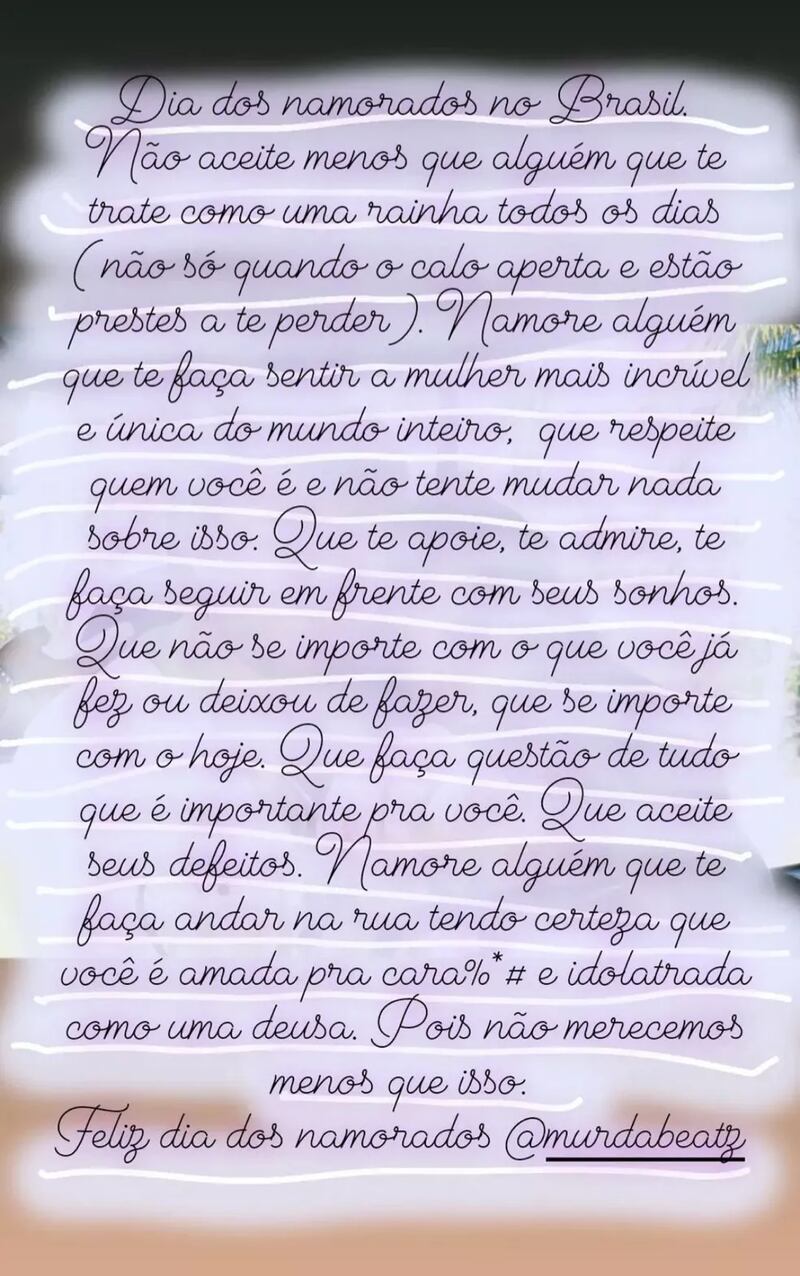 Dia dos namorados no Brasil.
Não aceite menos que alguém que te
trate como uma rainha todos os dias
(não só quando o calo aperta e estão
prestes a te perder). Namore alguém
que te faça sentir a mulher mais incrível
e única do mundo inteiro, que respeite
quem você é e não tente mudar nada
sobre isso. Que te apoie, te admire, te
faça seguir em frente com seus sonhos.
Que não se importe com o que você já
fez ou deixou de fazer, que se importe
com o hoje. Que faça questão de tudo
que é importante pra você. Que aceite
seus defeitos. Namore alguém que te
faça andar na rua tendo certeza que
você é amada pra cara%*# e idolatrada
como uma deusa. Pois não merecemos
menos que isso.
Feliz dia dos namorados @murdabeatz